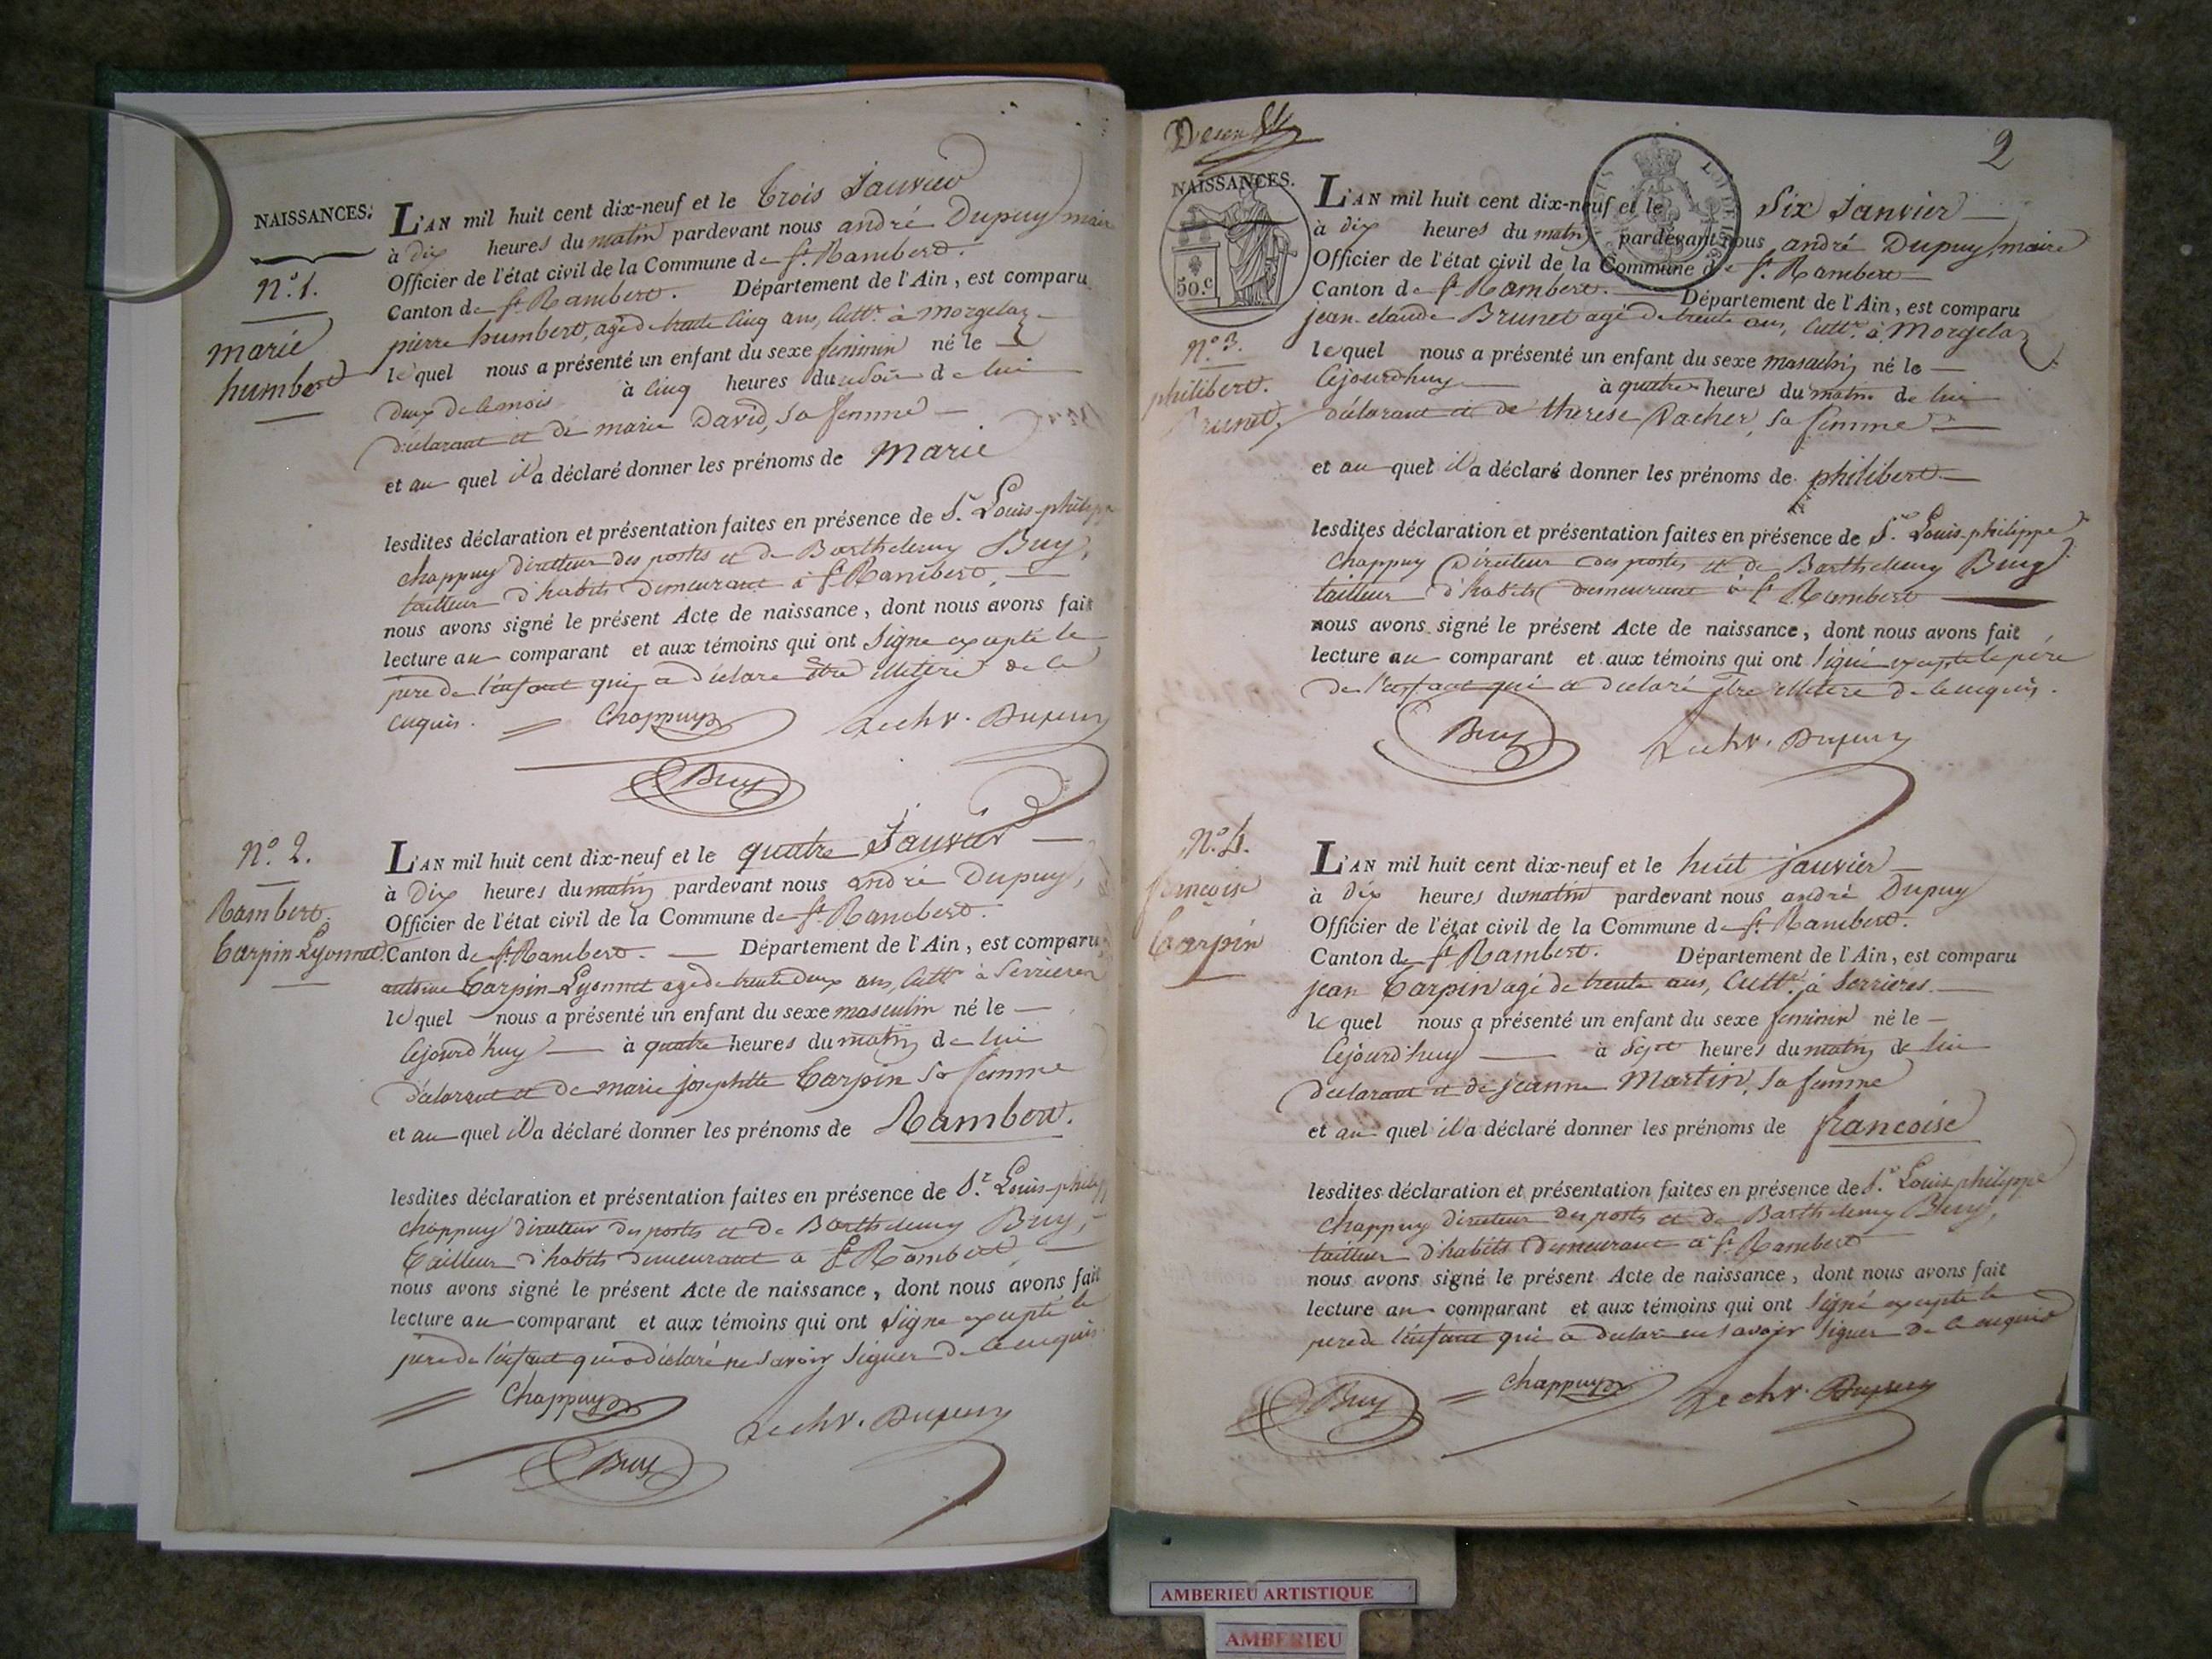 NAISSANCES.
L'AN mil huit cent dix-neuf et le trois Janvier
à dix heures du matin pardevant nous andré Dupuy, maire
Officier de l'état civil de la Commune de St. Rambert.
Canton de St Rambert. Département de l'Ain, est comparu
pierre humbert, agé de trente cinq ans, Cultr. à Morgelaz
lequel nous a présenté un enfant du sexe feminin né le
deux de ce mois à cinq heures du soir de lui
déclarant et de marie David, sa femme
et au quel il a déclaré donner les prénoms de Marie
lesdites déclaration et présentation faites en présence de Sr. Louis-philippe
Chappuy directeur des postes et de Barthelemy Buy,
tailleur d'habits demeurant à St Rambert,
nous avons signé le présent Acte de naissance, dont nous avons fait
lecture au comparant et aux témoins qui ont Signé excepté le
pere de l'enfant qui a déclaré être illitéré de ce
enquis. Chappuy Le chr. Dupuy
Buy
N.o 1.
marie
humbert
N.o 2.
Rambert
Carpin-Lyonnet.
L'AN mil huit cent dix-neuf et le quatre Janvier
à Dix heures du matin pardevant nous andré Dupuy,
Officier de l'état civil de la Commune de St. Rambert.
Canton de St. Rambert. Département de l'Ain, est comparu
antoine Carpin-Lyonnet agé de trente deux ans, Cultr à Serrieres
lequel nous a présenté un enfant du sexe masculin né le
Cejourd'huy à quatre heures du matin de lui
déclarant et de marie josephtte Carpin sa femme
et au quel il a déclaré donner les prénoms de Rambert.
lesdites déclaration et présentation faites en présence de Sr. Louis-philippe
Chappuy directeur des postes et de Barthelemy Buy,
Tailleur d'habits demeurant a St Rambert,
nous avons signé le présent Acte de naissance, dont nous avons fait
lecture au comparant et aux témoins qui ont Signé excepté le
pere de l'enfant qui a déclaré ne savoir signer de ce enquis
Chappuy Le chr. Dupuy
Buy
2
NAISSANCES.
50.c
L'AN mil huit cent dix-neuf et le Six Janvier
à dix heures du matin pardevant nous andré Dupuy, maire
Officier de l'état civil de la Commune de St. Rambert
Canton de St Rambert. Département de l'Ain, est comparu
jean-claude Brunet agé de trente ans, Cultr. à Morgelaz
lequel nous a présenté un enfant du sexe masculin né le
Cejourd'huy à quatre heures du matin de lui
déclarant et de therese Vacher, sa femme
et au quel il a déclaré donner les prénoms de philibert
lesdites déclaration et présentation faites en présence de Sr. Louis-philippe
Chappuy Directeur des postes et de Barthelemy Buy
tailleur d'habits demeurant à St Rambert
nous avons signé le présent Acte de naissance, dont nous avons fait
lecture au comparant et aux témoins qui ont Signé excepté le père
de l'enfant qui a declaré être illitéré de ce enquis.
Buy Le chr. Dupuy
N.o 3.
philibert.
Brunet,
N.o 4.
françoise
Carpin
L'AN mil huit cent dix-neuf et le huit janvier
à dix heures du matin pardevant nous andré Dupuy
Officier de l'état civil de la Commune de St. Rambert.
Canton de St Rambert. Département de l'Ain, est comparu
jean Carpin agé de trente ans, Cultr. à Serrieres
lequel nous a présenté un enfant du sexe feminin né le
Cejourd'huy à Sept heures du matin de lui
declarant et de jeanne Martin, sa femme
et au quel il a déclaré donner les prénoms de francoise
lesdites déclaration et présentation faites en présence de Sr. Louis philippe
Chappuy directeur des postes et de Barthelemy Buy,
tailleur d'habits demeurant à St Rambert
nous avons signé le présent Acte de naissance, dont nous avons fait
lecture au comparant et aux témoins qui ont Signé excepté le
pere de l'enfant qui a declaré ne savoir signer de ce enquis
Buy Chappuy Le chr Dupuy
AMBERIEU ARTISTIQUE
AMBERIEU